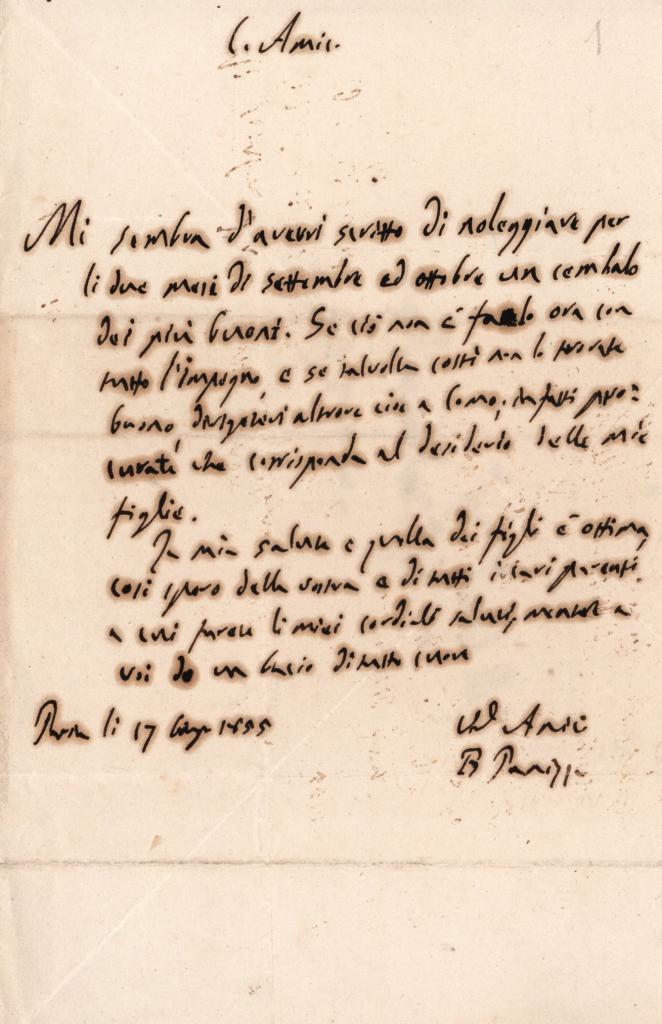 C. Amic.
1
Mi sembra d'avervi scritto di noleggiare per
li due mesi di settembre ed ottobre un cembalo
dei più buoni. Se ciò non è ora con
tutto l'impegno, e se talvolta costì non lo trovate
buono, dirigetevi altrove cioè a Como, infatti pro=
curate che corrisponda al desiderio delle mie
figlie.
La mia salute e quella dei figli è ottima,
così spero della vostra e di tutti i cari parenti
a cui farete li miei cordiali saluti, mentre a
voi do un bacio di tutto cuore
Pavia li 17 1855
Amic
B Panizza